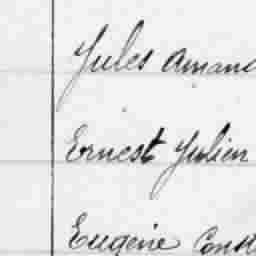 Jules Amand
Ernest Julien
Eugène Const